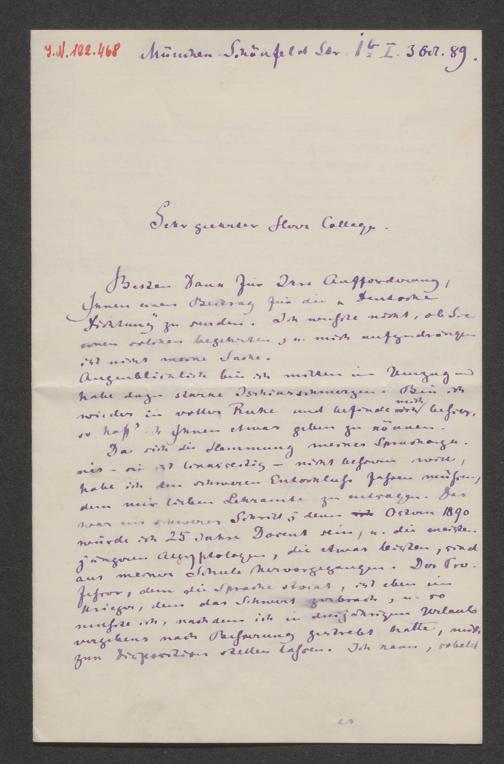 I.N. 182.468
München Schönfeld Str. 1b I. 3 Oct. 89.
Sehr geehrter Herr College.
Besten Dank für Ihre Aufforderung,
Ihnen einen Beitrag für die „Deutsche
Dichtung" zu senden. Ich wußte nicht, ob Sie
einen solchen begehrten, u. mich aufzudrängen
ist nicht meine Sache.
Augenblicklich bin ich mitten im Umzug und
habe dazu starke Ischiasschmerzen. Bin ich
wieder in voller Ruhe und befinde mich besser,
so hoff' ich Ihnen etwas geben zu können.
Da sich die Hemmung meines Sprachorga-
nes - sie ist linksseitig - nicht bessern will,
habe ich den schweren Entschluß fassen müssen,
dem mir lieben Lehramte zu entsagen. Das
war ein schwerer Schritt; denn Ostern 1890
würde ich 25 Jahre Docent sein, u. die meisten
jüngeren Aegyptologen, die etwas leisten, sind
aus meiner Schule hervorgegangen. Der Pro-
fessor, dem die Sprache stockt, ist eben ein
Krieger, dem das Schwert zerbrach, u. so
mußte ich, nachdem ich in dreijährigem Urlaub
vergebens nach Besserung gestrebt hatte, mich
zur Disposition stellen lassen. Ich kann, sobald
es